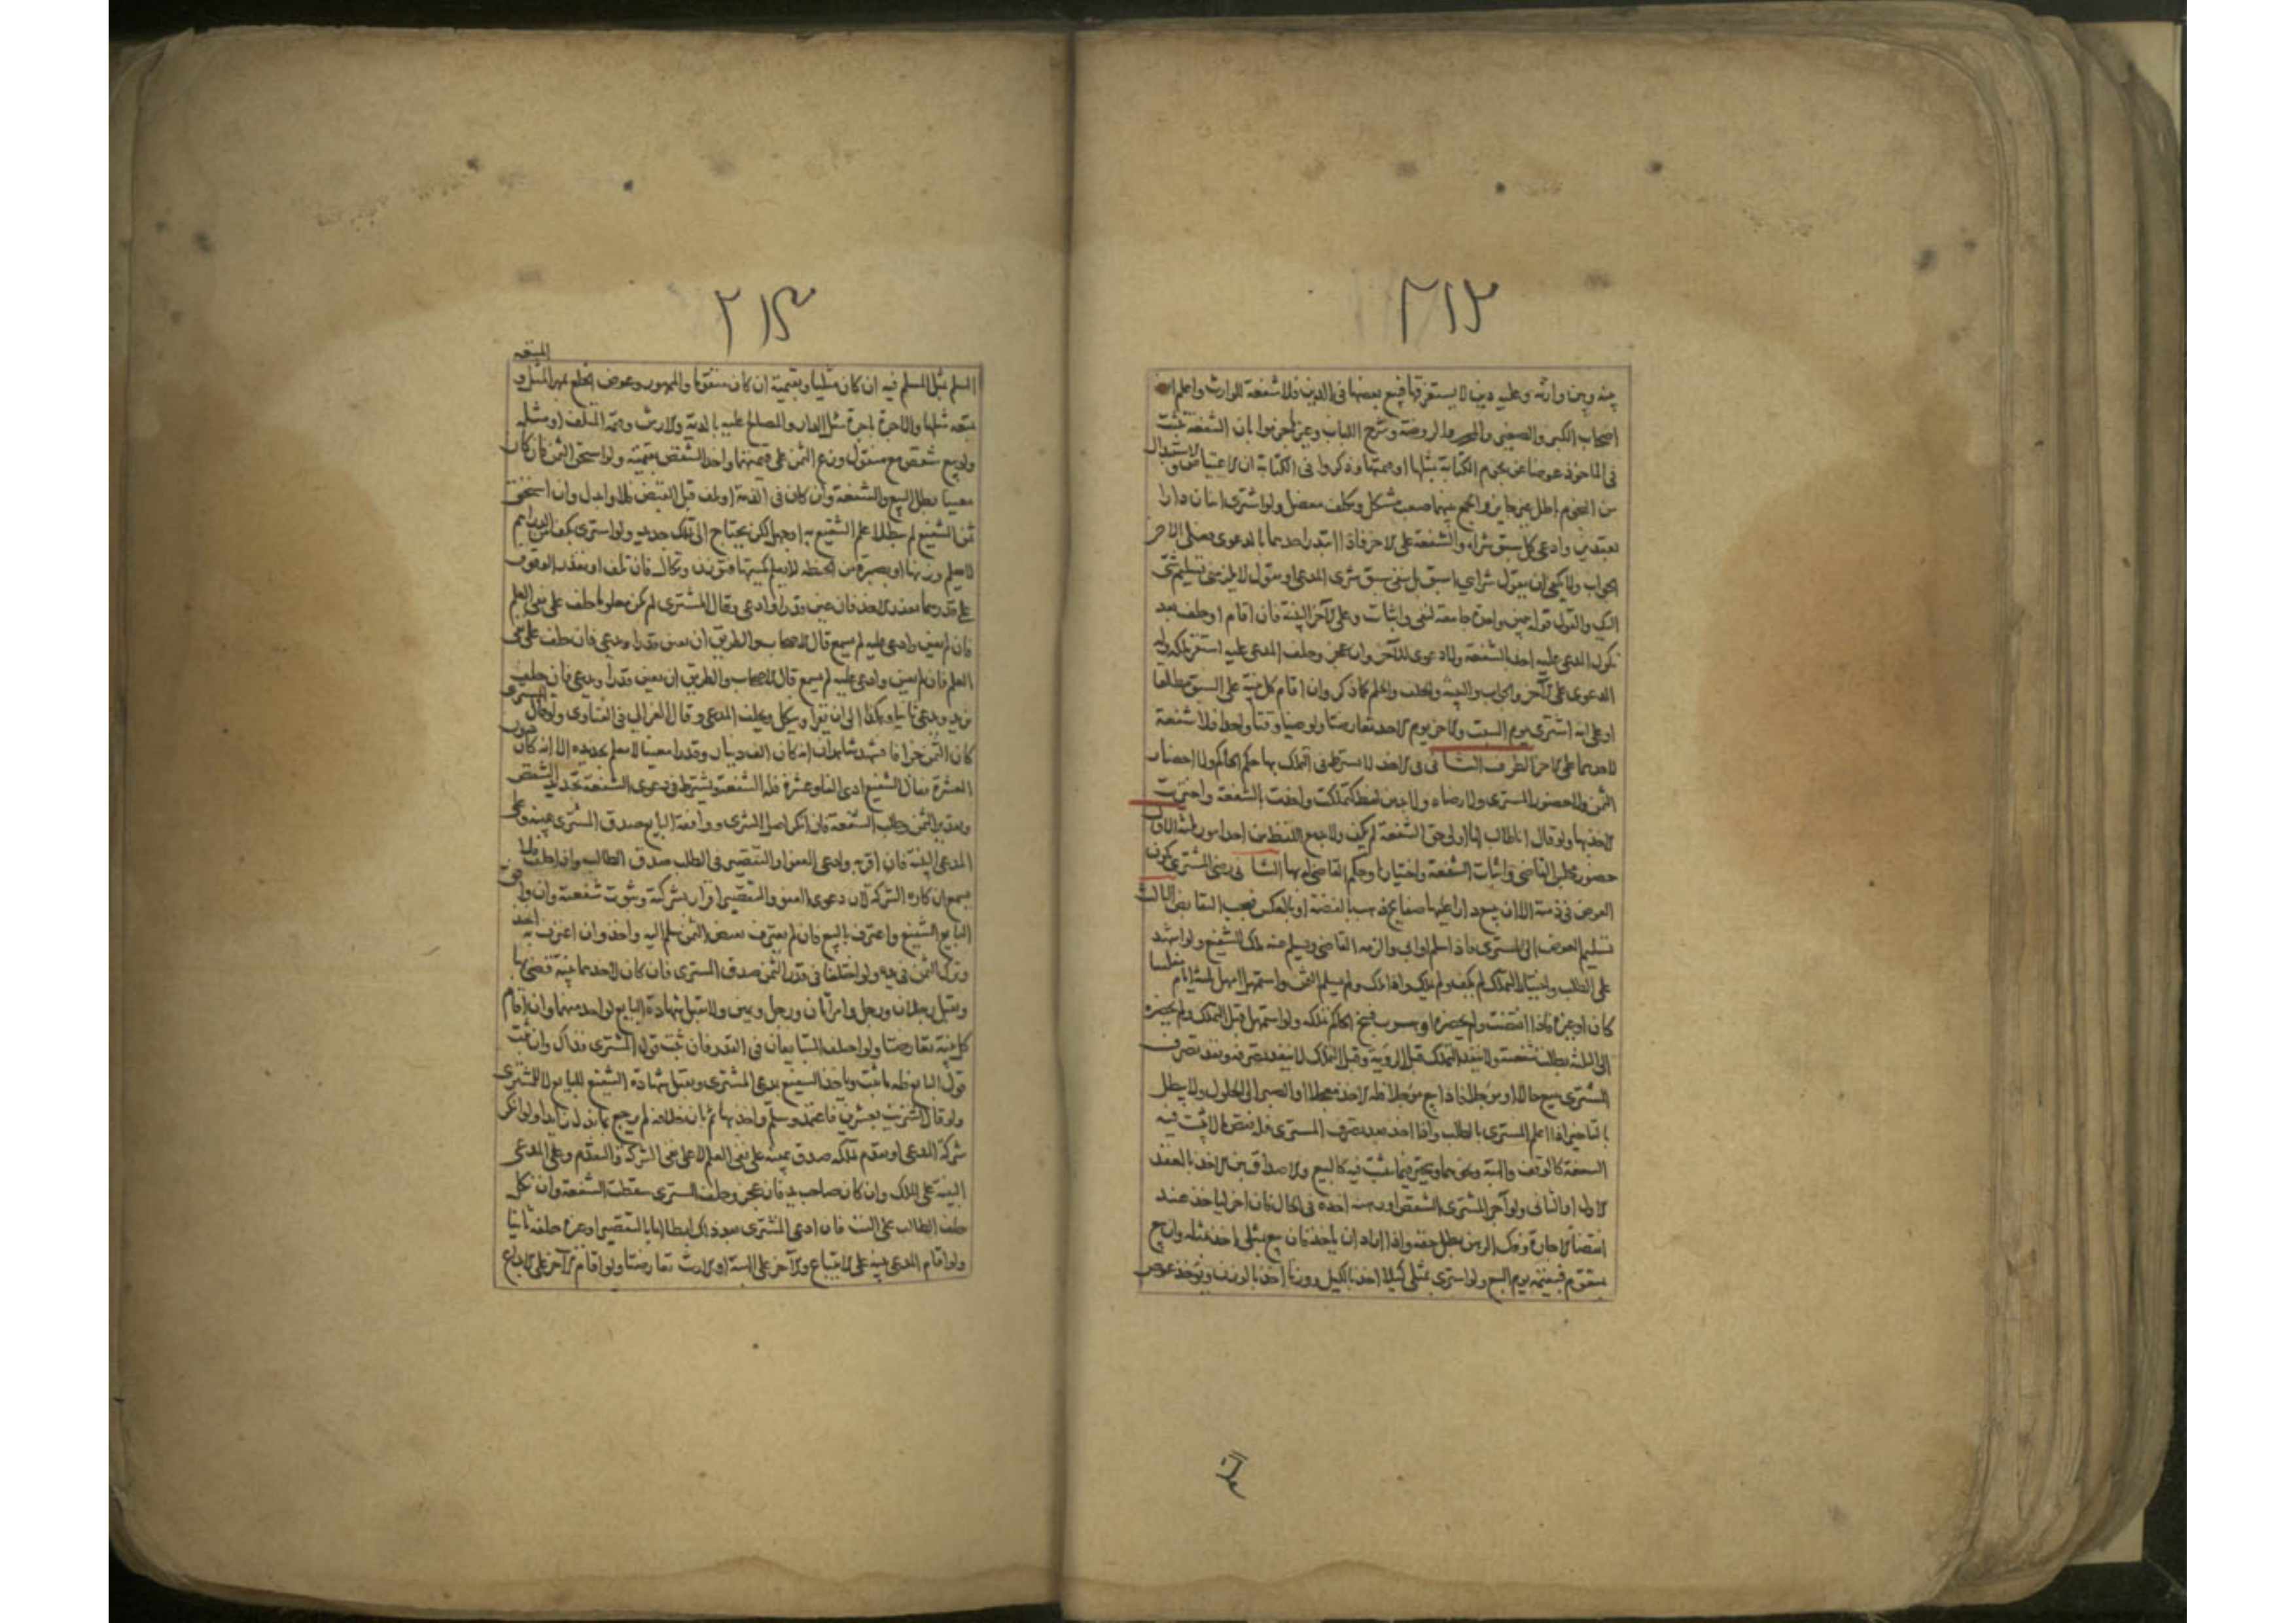 ٢١٣
بينه وبين وارثه وعليه دين لا يستغرقها فبيع بعضها في الدين فلا شفعة للوارث واعلم ان
اصحاب الكبير والصغير والمحرر والروضة وشرح اللباب وغيرها جزموا بان الشفعة تثبت
في الماخوذ عوضا عن نجوم الكتابة بمثلها او قيمتها وذكروا في الكتابة ان الاعتياض والاستبدال
من النجوم باطل غير جايز والجمع بينهما صعب مشكل وتكلف معضل ولو اشترى اثنان دارا
بعقدين وادعى كل سبق شرائه والشفعة على الاخر فاذا ابتدر احدهما بالدعوى فعلى الاخر
الجواب ولا يكفي ان يقول شرائي اسبق بل ينفي سبق شرى المدعي او يقول لا يلزمني تسليم شئ
اليك والقول قوله بيمين واحدة جامعة لنفي واثبات وعلى الآخر البينة فان اقام او حلف بعد
نكول المدعى عليه اخذ بالشفعة ولا دعوى للآخر وان عجز وحلف المدعى عليه استقر ملكه وله
الدعوى على الآخر والجواب والبينة والحلف والحكم كما ذكر وان اقام كل بينة على السبق مطلقا
او على انه اشترى يوم السبت والاخر يوم الاحد تعارضتا ولو عينا وقتا واحدا فلا شفعة
لاحدهما على الاخر الطرف الثاني في الاخذ لا يشترط في التملك بها حكم الحاكم ولا احضار
الثمن ولا حضور المشتري ولا رضاه ولا بد من لفظ كتملكت واخذت بالشفعة واخترت
الاخذ بها ولو قال انا طالب لها اولي حق الشفعة لم يكف ولا بد مع اللفظ من احد امور ثلثة الاول
حضور مجلس القاضي واثبات الشفعة واختيارها وحكم القاضي بها الثاني رضى المشتري بكون
العوض في ذمته الا ان يبيع دارا عليها صفايح ذهب بالفضة او بالعكس فيجب التقابض الثالث
تسليم العوض الى المشتري فاذا سلم او ابى والزمه القاضي وتسلم عنه ملك الشفيع ولو اشهد
على الطلب واختيار التملك لم يكف ولم يملك واذا ملك ولم يسلم الثمن واستمهل امهل ثلثة ايام مفلسا
كان او غيره فاذا انقضت ولم يحضره فسخ الحاكم تملكه ولو استمهل قبل التملك ولم يحضره
الى الثلثة بطلت شفعته ولا ينفذ التملك قبل الرؤية وقبل التملك لا ينفذ تصرفه وينفذ تصرف
المشتري بيع حالا او مؤجلا فاذا بيع مؤجلا فله الاخذ معجلا او الصبر الى الحلول ولا يبطل
بالتاخير اذا اعلم المشتري بالطلب واذا اخذ بعد تصرف المشتري فله نقض ما لا يثبت فيه
الشفعة كالوقف والهبة ونحوهما ويتخير فيما يثبت فيه كالبيع والاصداق بين الاخذ بالعقد
الاول او الثاني ولو آجر المشتري الشقص او رهنه اخذه في الحال فان اخر لياخذ عند
انقضاء الاجارة وفك الرهن بطل حقه واذا اراد ان ياخذ فان بيع بمثلي اخذ بمثله وان بيع
بمتقوم فبقيمته يوم البيع ولو اشترى بمثلي كيلا اخذ بالكيل ووزنا اخذ بالوزن ويؤخذ عوض
٢١٤
المتعة
السلم بمثل المسلم فيه ان كان مثليا وبقيمته ان كان متقوما والمهور وعوض الخلع بمهر المثل و
متعة مثلها والاجرة باجرة مثل الدار والمصالح عليه بالدية والارش وقيمة المتلف او مثله
ولو بيع شقص مع منقول وزع الثمن على قيمتهما واخذ الشقص بقيمته ولو استحق الثمن فان كان
معينا بطل البيع والشفعة وان كان في الذمة او تلف قبل القبض فلا وابدل وان استحق
ثمن الشفيع لم يبطل علم الشفيع به او جهل لكن يحتاج الى تملك جديد ولو اشترى بكف من الدراهم
لا يعلم وزنها او بصبرة من الحنطة لا يعلم كميتها فتوزن وتكال فان تلف او تعذر الوقوف
على قدرهما تعذر الاخذ فان عين قدرا وادعى وقال المشتري لم يكن معلوما حلف على نفي العلم
فان لم يعين وادعى عليه لم يسمع قال الاصحاب والطريق ان يعين قدرا ويدعي فان حلف على نفي
العلم فان لم يعين وادعى عليه لم يسمع قال الاصحاب والطريق ان يعين قدرا ويدعي فان حلف المشتري
يزيد ويدعي ثانيا وهكذا الى ان يقرا وينكل ويحلف المدعي وقال الغزالي في الفتاوى ولو قال
كان الثمن جزافا فشهد شاهدان انه كان الف دينار وقدرا معينا لا نعلم تحديده الا انه كان دون
العشرة فقال الشفيع ادى الفا وعشرة فله الشفعة ويشترط في دعوى الشفعة تحديد الشقص
وتقدير الثمن وطلب الشفعة فان انكر اصل الشرى ووافقه البايع صدق المشتري بيمينه وعلى
المدعي البينة فان اقر به وادعى العفو او التقصير في الطلب صدق الطالب واذا حلف فلا
يسمع انكاره الشركة لان دعوى العفو والتقصير اقرار بشركته وثبوت شفعته وان وافق
البايع الشفيع واعترف بالبيع فان لم يعترف بقبض الثمن سلم اليه واخذ وان اعترف به اخذ
وترك الثمن في يده ولو اختلفا في قدر الثمن صدق المشتري فان كان لاحدهما بينة قضي بها
ويقبل رجلان ورجل وامراتان ورجل ويمين ولا تقبل شهادة البايع لواحد منهما وان اقام
كل بينة تعارضتا ولو اختلف المتبايعان في القدر فان ثبت قول المشتري فذاك وان ثبت
قول البايع فله ما ثبت وياخذ الشفيع بدعوى المشتري ويقبل شهادة الشفيع للبايع لا للمشتري
ولو قال اشتريت بعشرين فاعتمد وسلم واخذ بها ثم بان خلافه لم يرجع بما بذل زايدا ولو انكر
شركة المدعي او تقدم تملكه صدق بيمينه على نفي العلم لا على نفي الشركة والتقدم وعلى المدعي
البينة على الملك وان كان صاحب يد فان عجز وحلف المشتري سقطت الشفعة وان نكل
حلف الطالب على البت فان ادعى المشتري بعد ذلك ابطالها بالتقصير او غيره حلفه ثانيا
ولو اقام المدعي بينة على الابتياع والآخر على الهبة او الارث تعارضتا ولو اقام الآخر على الايداع